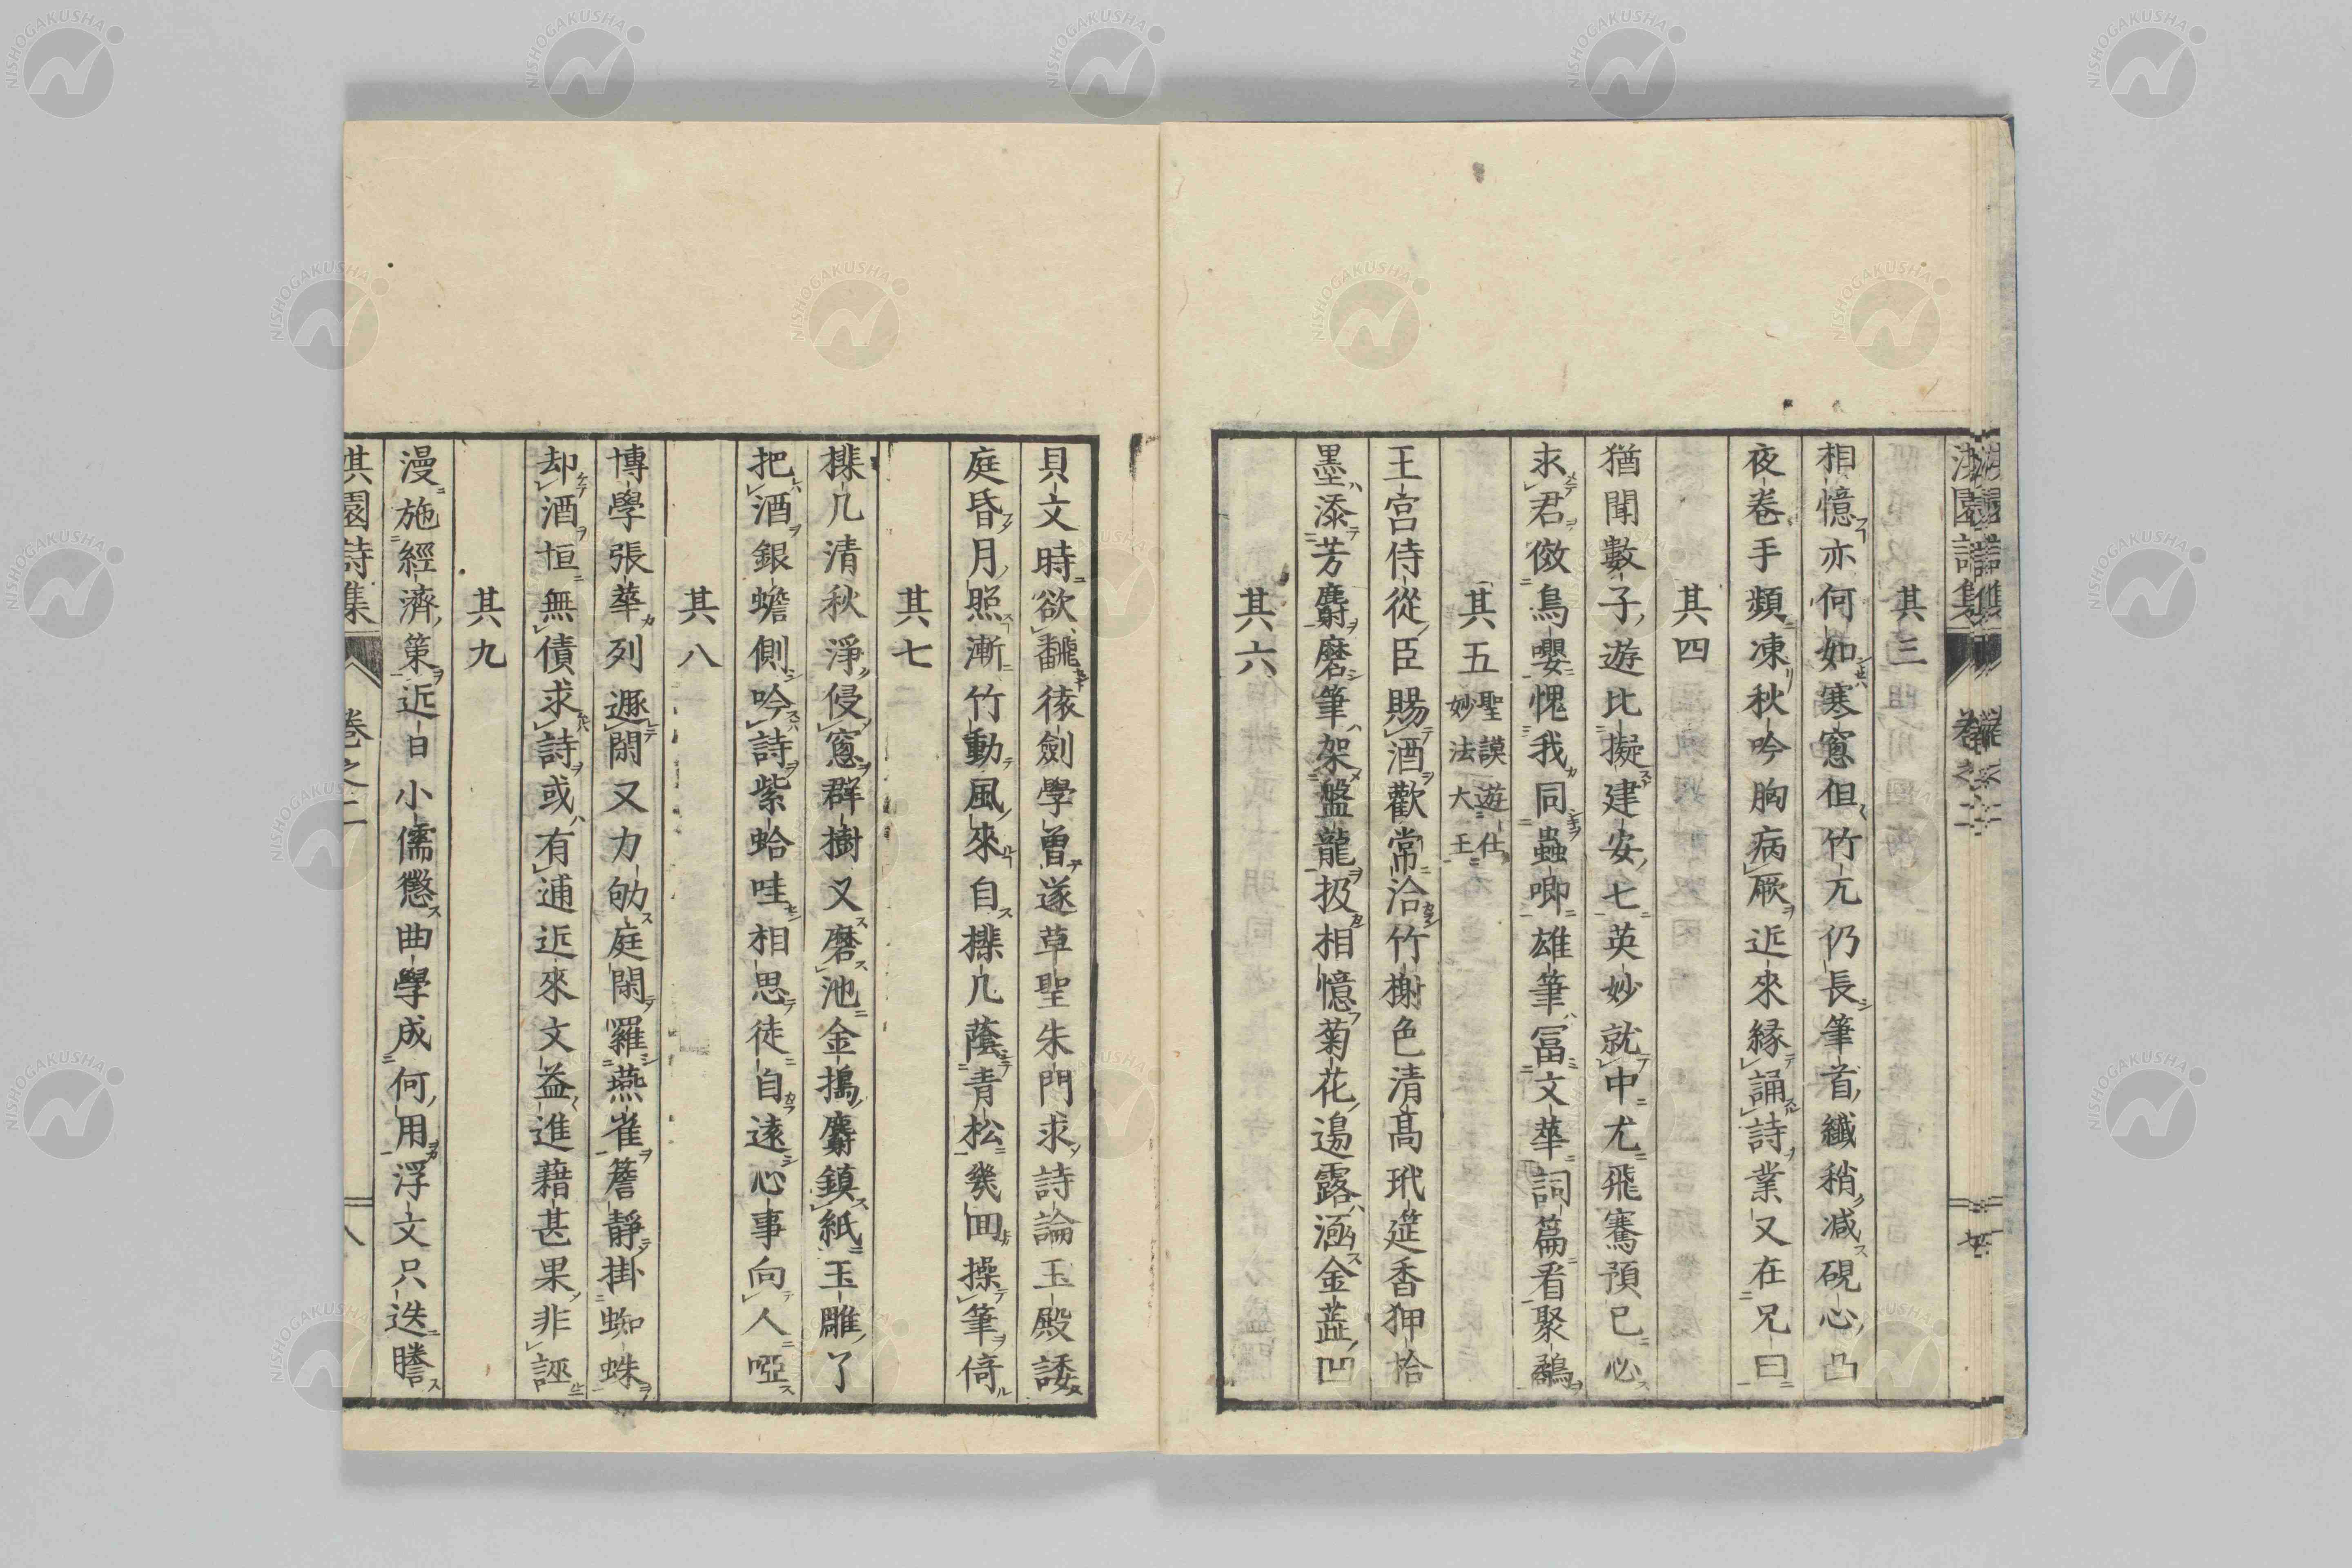 其三
相憶亦何如寒窓但竹亢仍長筆首纖稍減硯心凸
夜卷手頻凍秋吟胸病厥近來緣誦詩業又在兄曰
其四
猶聞數子遊比擬建安七英妙就中尤飛騫預已心
求君傚鳥嚶愧我同蟲唧雄筆富文華詞篇看聚鷸
其五 聖謨遊仕妙法大王
王宮侍從臣賜酒歡常洽竹榭色清高玳筵香狎拾
墨添芳麝磨筆架盤龍扱相憶菊花邊露涵金蕋凹
其六
貝文時欲飜後劍學曽遂草聖朱門求詩論玉殿諉
庭昏月照漸竹動風來自㮄几蔭青松幾回操筆倚
其七
㮄几清秋淨侵窓群樹又磨池金搗麝鎮紙玉雕了
把酒銀蟾側吟詩紫蛤哇相思徒自遠心事向人啞
其八
博學張華列遯閑又力劬庭閑羅燕雀簷靜掛蜘蛛
却酒恒無債求詩或有逋近來文益進藉甚果非誣
其九
漫施經濟策近日小儒懲曲學成何用浮文只迭謄
淇園詩集 卷之二 八
NISHOGAKUSHA